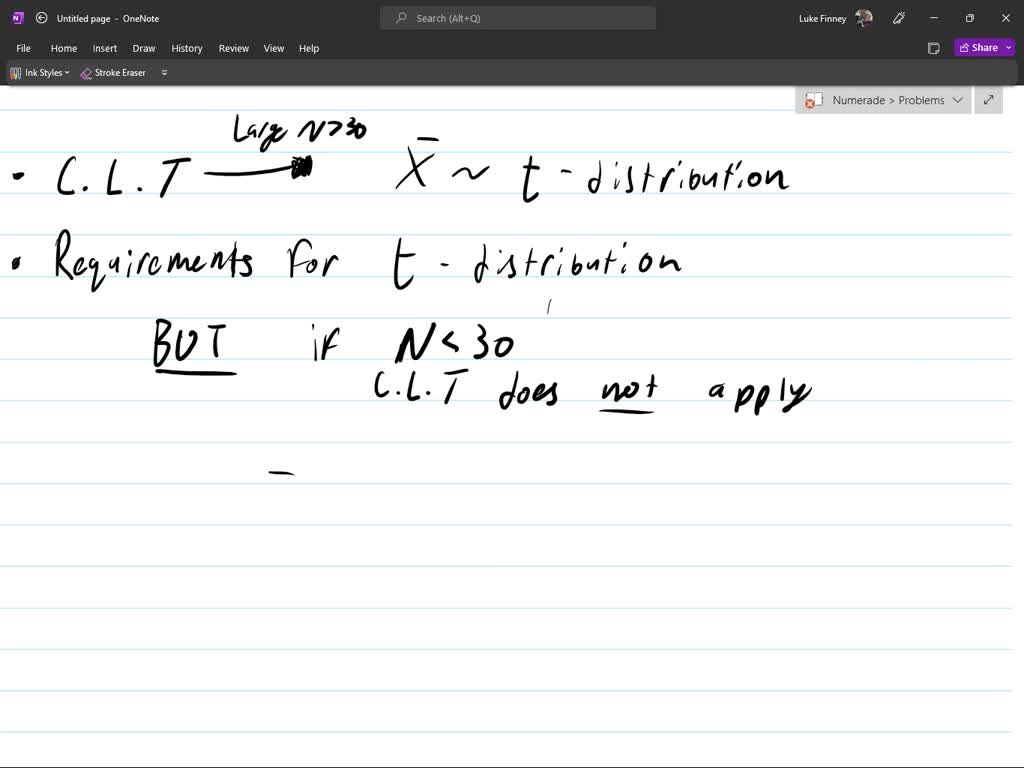 Untitled page - OneNote
Search (Alt+Q)
Luke Finney
File Home Insert Draw History Review View Help
Share
Ink Styles
Stroke Eraser
Numerade > Problems
Large N>30
• C.L.T X̄ ~ t - distribution
• Requirements for t - distribution
BUT if N < 30
C.L.T does not apply